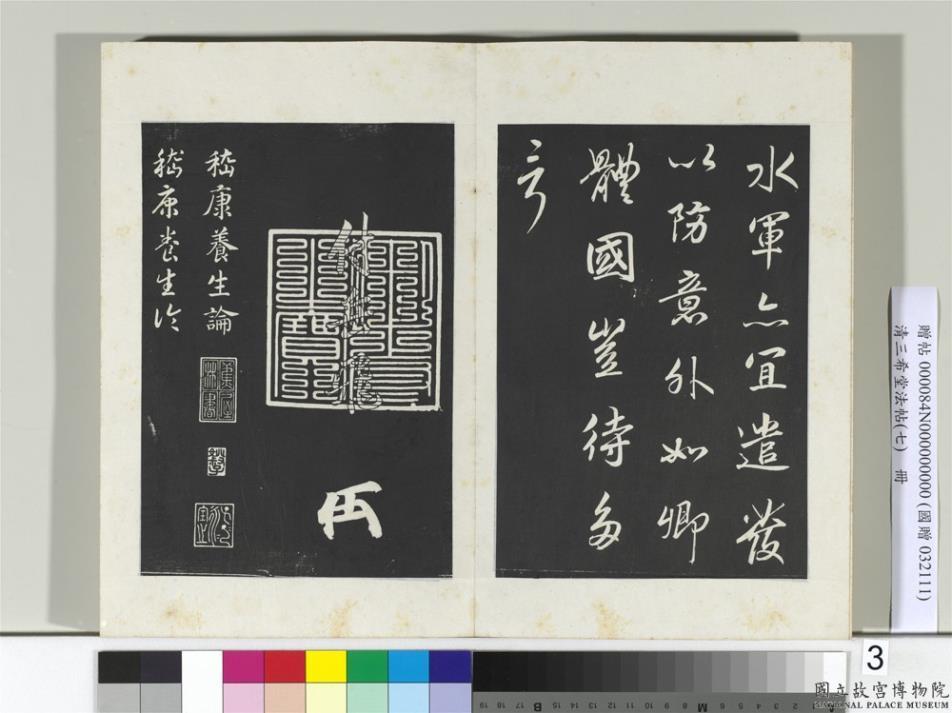 水軍亦宜遣發
以防意外如卿
體國豈待多
言
付岳飛
嵇康養生論
嵇康養生論
贈帖 000084N000000000 (國贈 032111)
清三希堂法帖(七) 冊
3
國立故宮博物院
NATIONAL PALACE MUSEUM